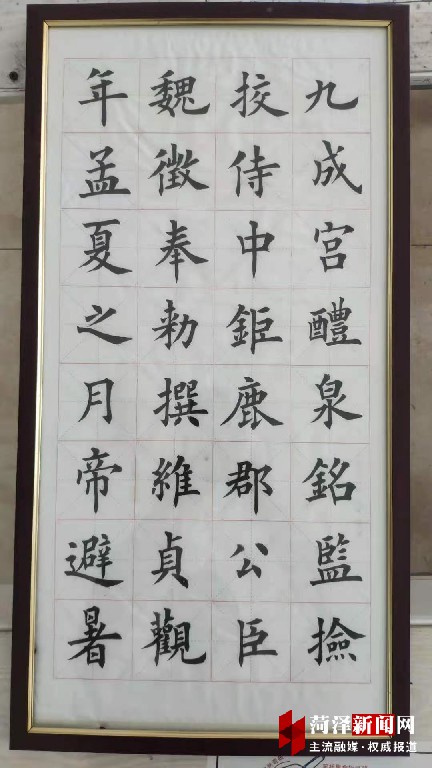 九成宮醴泉銘監撿
挍侍中鉅鹿郡公臣
魏徵奉勅撰維貞觀
年孟夏之月帝避暑
菏泽新闻网
主流融媒·权威报道